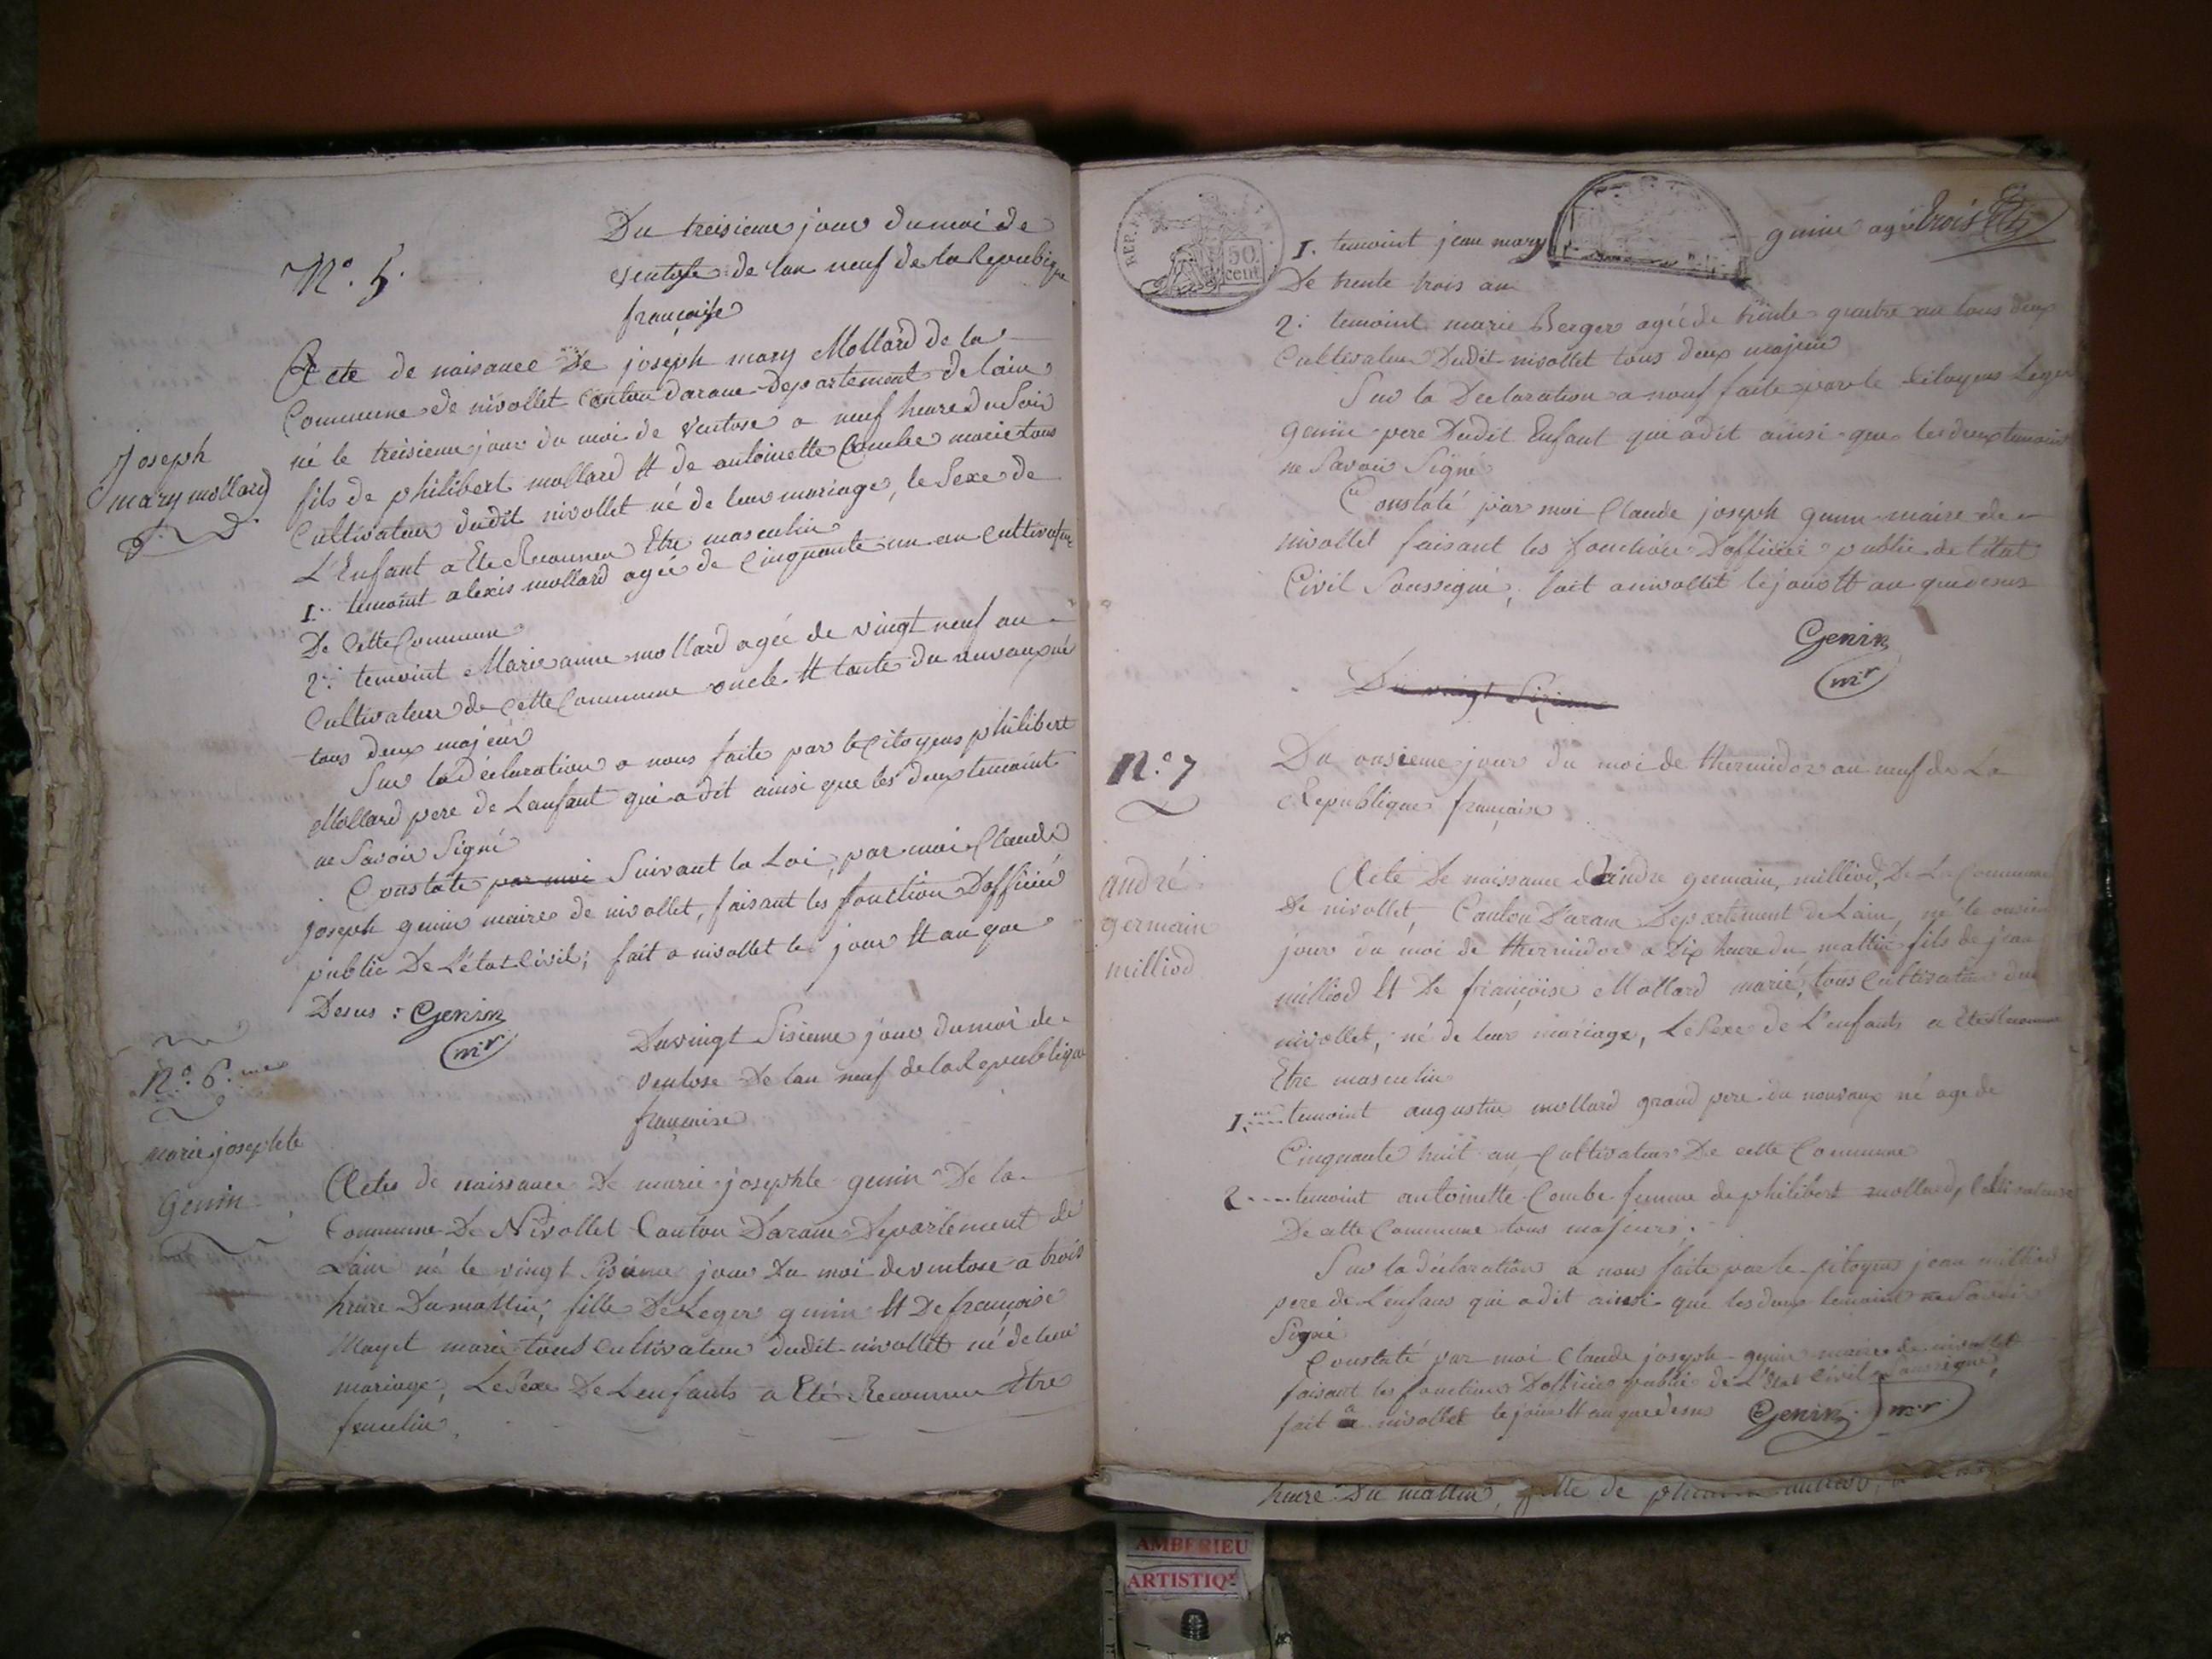 Du treisieme jour du moi de
N.o 5.
ventose de lan neuf de la Republique
française
Acte de naisance De joseph mary Mollard de la
Commune de nivollet Canton darane Departement de lain
né le treisieme jour du moi de ventose a neuf heure du Soir
Joseph
mary mollard
fils de philibert mollard Et de antoinette Combe marie tous
Cultivateur dudit nivollet né de leur mariage, le Sexe de
L'Enfant a Ete Reconneu Etre masculin
1. temoint alexis mollard agée de Cinquante un an Cultivateur
De Cette Commune
2. temoint Marie anne mollard agée de vingt neuf an
Cultivateur de Cette Commune oncle Et tante du nuvaux né
tous deux majeur
Sur la Déclaration a nous faite par le Citoyens philibert
Mollard pere de Lenfant qui a dit ainsi que les deux temoint
ne Savoir Signé
Constate par moi Suivant la Loi, par moi Claude
joseph genin maire de nivollet, faisant les fonction Dofficié
public De L'état Civil; fait a nivollet le jour Et an que
Desus : Genin
mr
Du vingt Sisieme jour du moi de
N.o 6.me
ventose De lan neuf de la Republique
française
marie josephte
Genin
Actes de naissance De marie josephte genin De la
Commune De Nivollet Canton Darane Departement de
Lain né le vingt Sisieme jour Du moi de ventose a trois
heure Du mattin, fille De Leger genin Et De françoise
Mayet marie tous Cultivateur dudit nivollet né de leur
mariage, Le Sexe De Lenfants a Eté Reconneu Etre
femelin.
REP. FRA
50 cent
1. temoint jean mary genin agée trois
De trente trois an
2. temoint marie Berger agée de trente quatre an tous deux
Cultivateur Dudit nivollet tous deux majeur
Sur la Declaration a nous faite par le Citoyens Leger
genin pere Dudit Enfant qui a dit ainsi que les deux temoint
ne Savoir Signé
Constaté par moi Claude joseph genin maire de
nivollet faisant les fonction D'officié public de l'état
Civil Soussigné, fait a nivollet le jour Et an que desus
Genin
mr
Du vingt Sisieme
N.o 7
Du onsieme jour du moi de thermidor an neuf de La
Republique française
andré
germain
milliod
Acte De naissance D'andre germain milliod, De La Commune
De nivollet, Canton D'arane Departement De Lain, né le onsieme
jour du moi de thermidor a Dix heure du mattin fils de jean
milliod Et De françoise Mollard marié, tous Cultivateur du
nivollet, né de leur mariage, Le Sexe de L'enfants a Ete Reconneu
Etre masculin
1.er temoint augustin mollard grand pere du nouvaux né age de
Cinquante huit an Cultivateur De cette Commune
2.... temoint antoinette Combe femme de philibert mollard, Cultivateur
De cette Commune tous majeurs.
Sur la déclaration a nous faite par le Citoyens jean milliod
pere de L'enfans qui a dit ainsi que les deux temoint ne Savoir
Signé
Constaté par moi Claude joseph genin maire de nivollet
faisant les fonction D'officié public de L'état Civil Soussigné,
fait a nivollet le jour Et an que desus Genin mr
heure Du mattin, fille de
AMBERIEU
ARTISTIQ